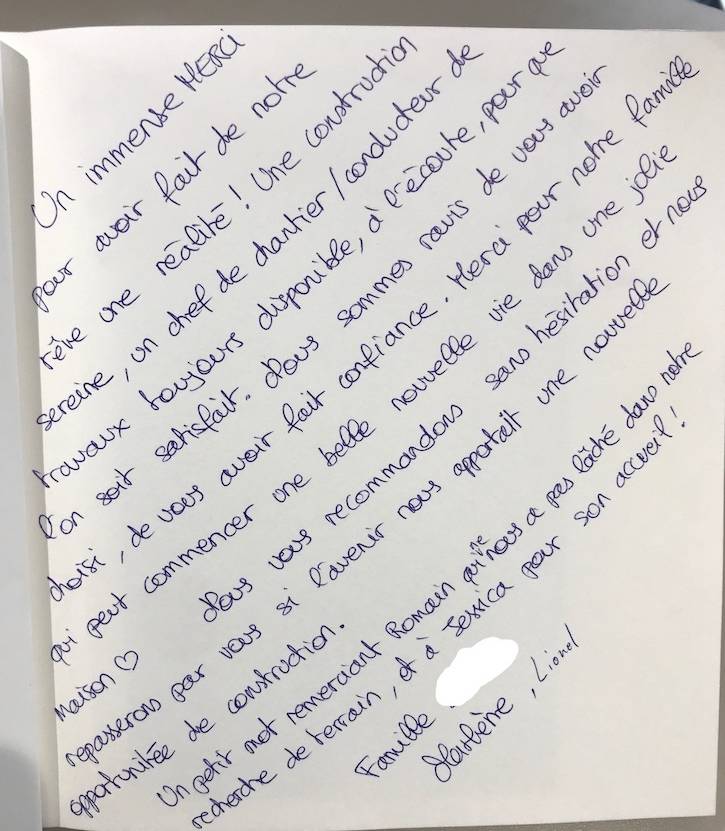 Un immense MERCI
pour avoir fait de notre
rêve une réalité! Une construction
sereine, un chef de chantier/conducteur de
travaux toujours disponible, à l'écoute, pour que
l'on soit satisfait. Nous sommes ravis de vous avoir
choisi, de vous avoir fait confiance. Merci pour notre famille
qui peut commencer une belle nouvelle vie dans une jolie
maison ♡ Nous vous recommandons sans hésitation et nous
repasserons par vous si l'avenir nous apportait une nouvelle
opportunitée de construction.
Un petit mot remerciant Romain qui ne nous a pas lâché dans notre
recherche de terrain, et à Jessica pour son accueil!
Famille
Marlène, Lionel